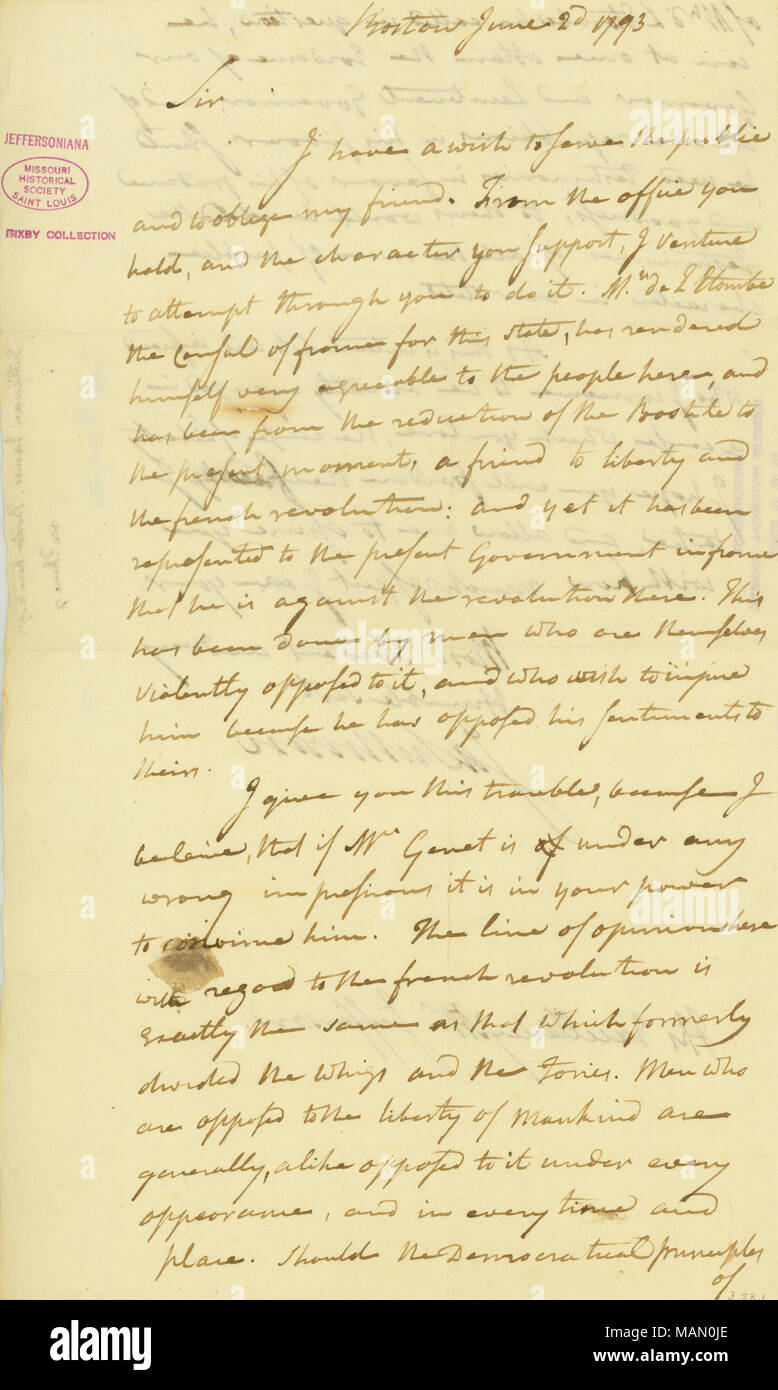 Boston June 2d 1793
Sir
JEFFERSONIANA
MISSOURI
HISTORICAL
SOCIETY
SAINT LOUIS
BIXBY COLLECTION
I have a wish to serve the public
and to oblige my friend. From the office you
hold, and the character you support, I venture
to attempt through you to do it. Mr. de L'Etombe
the Consul of france for this State, has rendered
himself very agreeable to the people here, and
has been from the reduction of the Bastile to
the present moment, a friend to liberty and
the french revolution: and yet it has been
represented to the present Government in france
that he is against the revolution there. This
has been done by men who are themselves
violently opposed to it, and who wish to injure
him because he has opposed his sentiments to
theirs.
I give you this trouble, because I
beleive, that if Mr. Genet is under any
wrong impressions it is in your power
to convince him. The line of opinion here
with regard to the french revolution is
exactly the same as that which formerly
divided the Whigs and the Tories. Men who
are opposed to the liberty of Mankind are
generally, alike opposed to it under every
appearance, and in every time and
place. Should the Democratical principles
of
alamy
alamy stock photo
MAN0JE
www.alamy.com